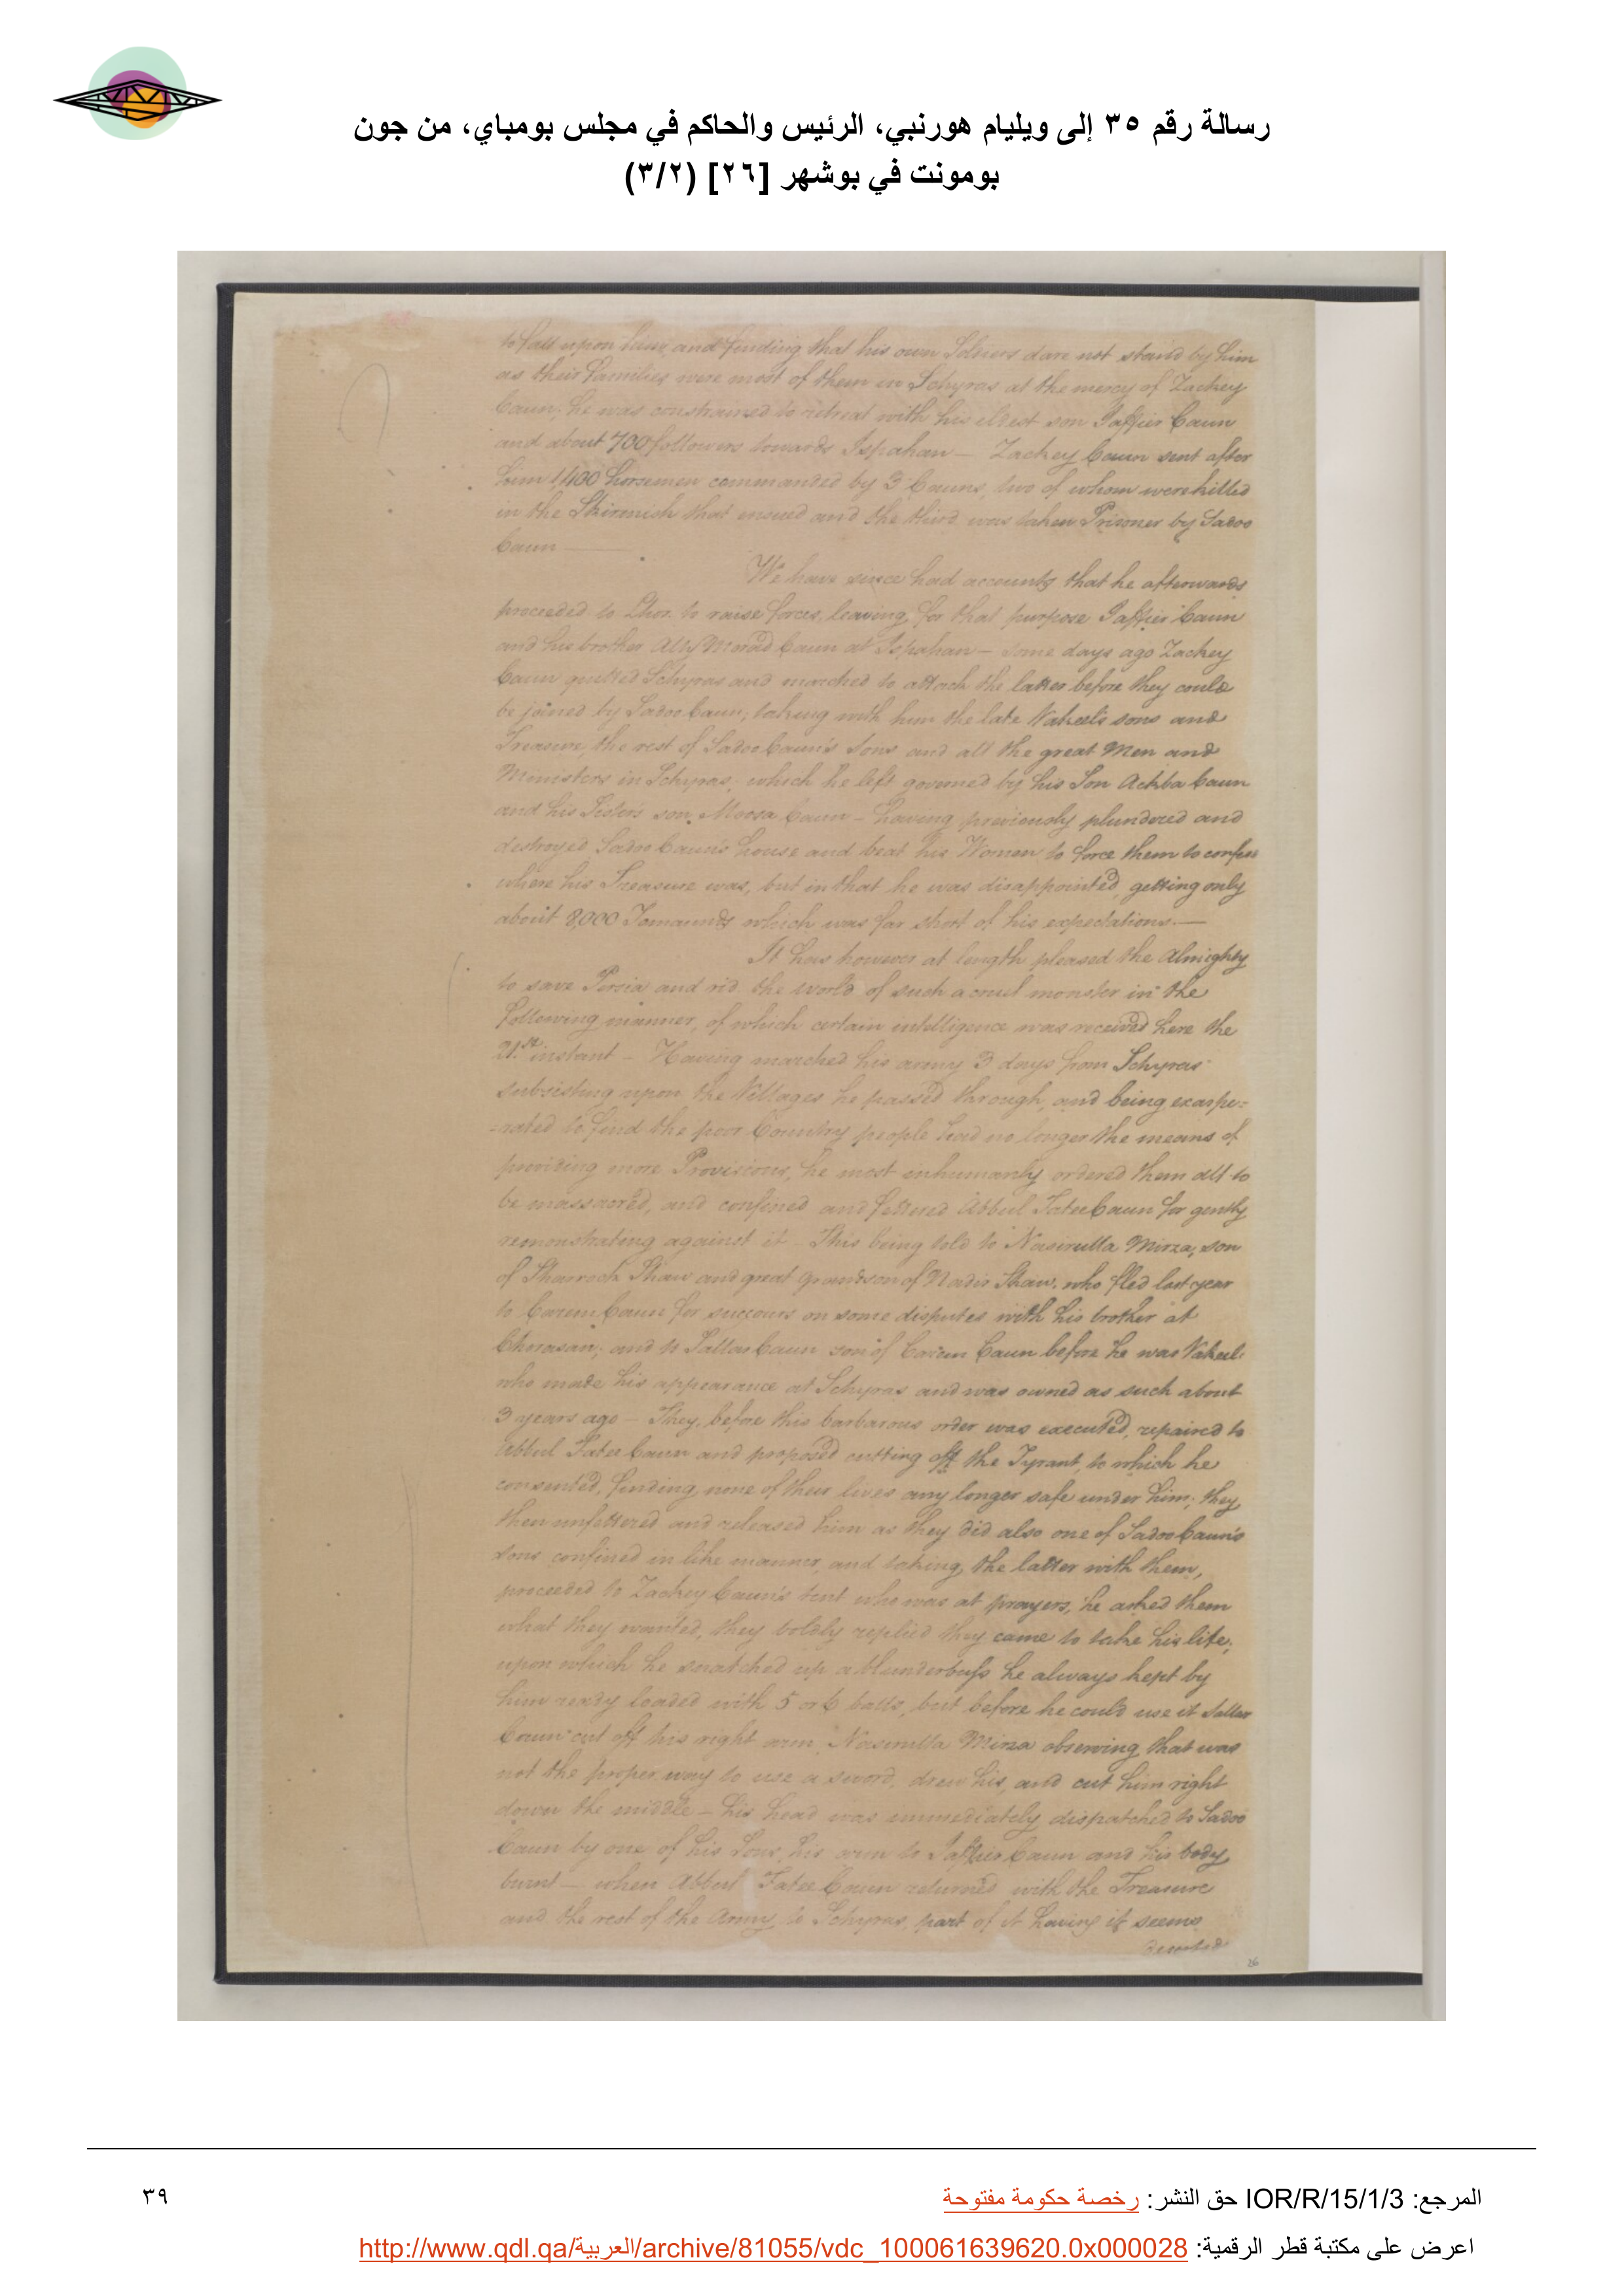 رسالة رقم ٣٥ إلى ويليام هورنبي، الرئيس والحاكم في مجلس بومباي، من جون
بومونت في بوشهر [٢٦] (٣/٢)
to fall upon him, and finding that his own Soldiers dare not stand by him
as their Families were most of them in Schyras at the mercy of Zackey
Caun, he was constrained to retreat with his eldest son Jaffier Caun
and about 700 followers towards Ispahan — Zackey Caun sent after
him 1,400 horsemen commanded by 3 Cauns, two of whom were killed
in the Skirmish that ensued and the third was taken Prisoner by Sadoo
Caun —
We have since had accounts that he afterwards
proceeded to Lhor. to raise forces, leaving for that purpose Jaffier Caun
and his brother Ally Morad Caun at Ispahan — some days ago Zackey
Caun quitted Schyras and marched to attack the latter before they could
be joined by Sadoo Caun, taking with him the late Vakeel's sons and
Treasure, the rest of Sadoo Caun's Sons and all the great Men and
Ministers in Schyras, which he left governed by his Son Ackba Caun
and his Sister's son, Moosa Caun — having previously plundered and
destroyed Sadoo Caun's house and beat his Women to force them to confess
where his Treasure was, but in that he was disappointed, getting only
about 8,000 Tomaunds which was far short of his expectations. —
It has however at length pleased the Almighty
to save Persia and rid the world of such a cruel monster in the
following manner, of which certain intelligence was received here the
21.st instant — Having marched his army 3 days from Schyras
subsisting upon the Villages he passed through, and being exaspe=
=rated to find the poor Country people had no longer the means of
providing more Provisions, he most inhumanly ordered them all to
be massacred, and confined and fettered Abbul Fatee Caun for gently
remonstrating against it. This being told to Nasirulla Mirza, son
of Sharroch Shaw and great grandson of Nadir Shaw, who fled last year
to Carem Caun for succours on some disputes with his brother at
Chorasan; and to Sallar Caun son of Carem Caun before he was Vakeel
who made his appearance at Schyras and was owned as such about
3 years ago — They, before this barbarous order was executed, repaired to
Abbul Fatee Caun and proposed cutting off the Tyrant, to which he
consented, finding none of their lives any longer safe under him; they
then unfettered and released him as they did also one of Sadoo Caun's
sons confined in like manner, and taking the latter with them,
proceeded to Zackey Caun's tent who was at prayers, he asked them
what they wanted, they boldly replied they came to take his life,
upon which he snatched up a blunderbuss he always kept by
him ready loaded with 5 or 6 balls, but before he could use it Sallar
Caun cut off his right arm, Nasirulla Mirza observing that was
not the proper way to use a sword, drew his, and cut him right
down the middle — his head was immediately dispatched to Sadoo
Caun by one of his Sons, his arm to Jaffier Caun and his body
burnt — when Abbul Fatee Caun returned with the Treasure
and the rest of the Army to Schyras, part of it having it seems
deserted
26
المرجع: IOR/R/15/1/3 حق النشر: رخصة حكومة مفتوحة
٣٩
اعرض على مكتبة قطر الرقمية: http://www.qdl.qa/العربية/archive/81055/vdc_100061639620.0x000028